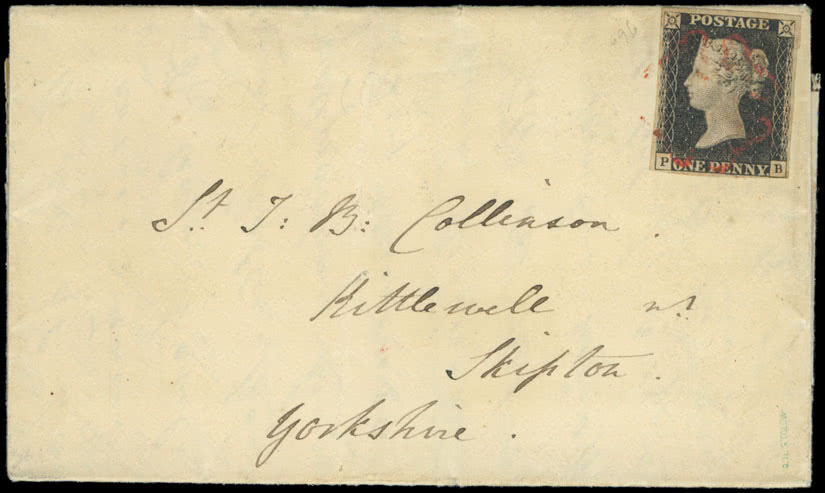 POSTAGE
P ONE PENNY B
St. J: B: Collinson.
Kittlewell nr
Skipton.
Yorkshire.